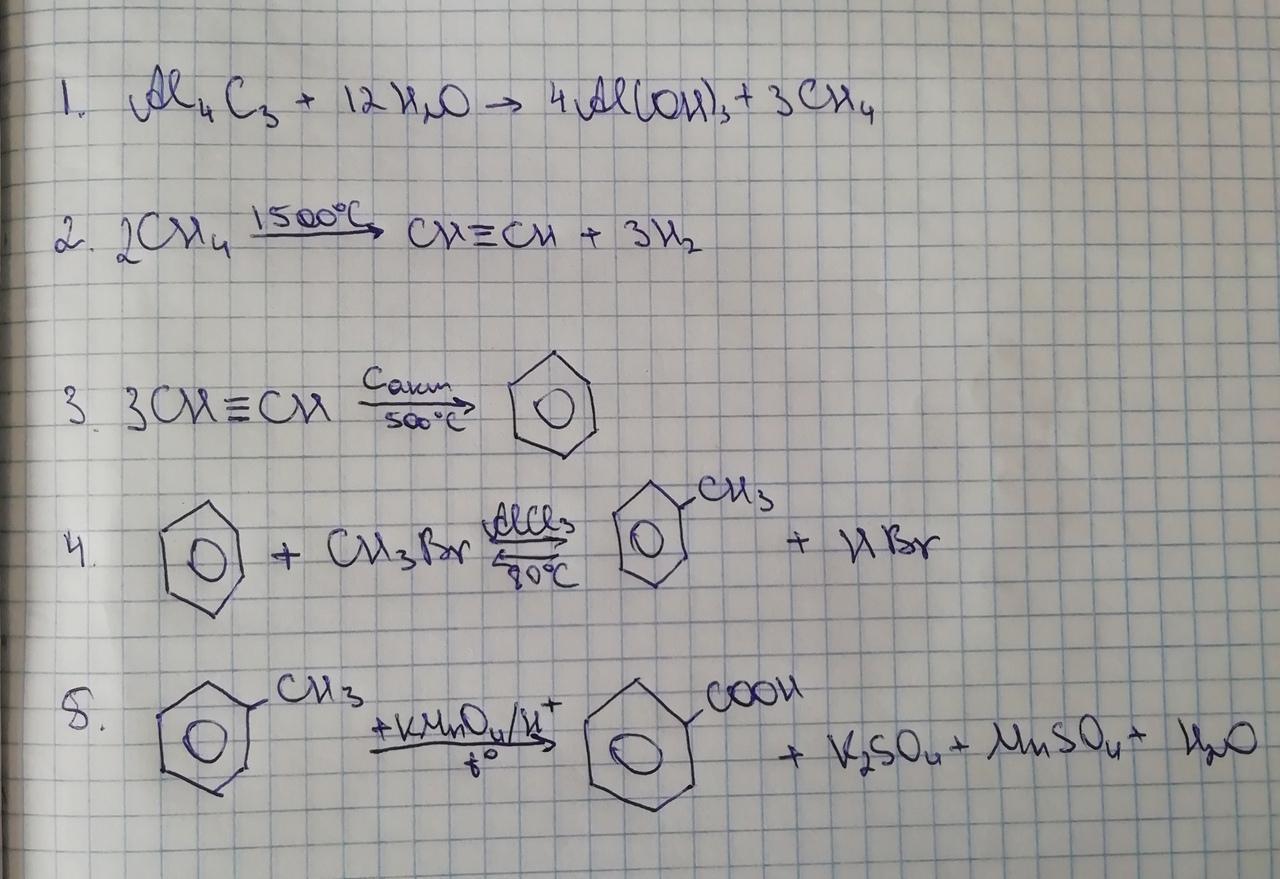 1. Al₄C₃ + 12H₂O → 4Al(OH)₃ + 3CH₄
2. 2CH₄ 1500°C → CH≡CH + 3H₂
3. 3CH≡CH Cакт 500°C →
4. + CH₃Br AlCl₃ ⇄ CH₃ + HBr
5. CH₃ +KMnO₄/H⁺ t° → COOH + K₂SO₄ + MnSO₄ + H₂O